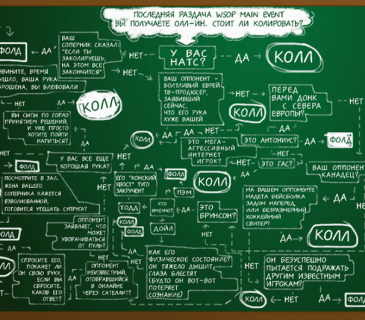 ПОСЛЕДНЯЯ РАЗДАЧА WSOP MAIN EVENT
ВЫ ПОЛУЧАЕТЕ ОЛЛ-ИН. СТОИТ ЛИ КОЛИРОВАТЬ?
У ВАС
НАТС?
ДА
КОЛЛ
НЕТ
НЕТ
ВАШ
СОПЕРНИК СКАЗАЛ:
"ЕСЛИ ТЫ
ЗАКОЛИРУЕШЬ,
НА ЭТОМ ВСЕ
ЗАКОНЧИТСЯ"
ДА
ФОЛД
ВРЕМЯ
ВАША РУКА
ВЫ БЛЕФОВАЛИ
НЕТ
ДА
КОЛЛ
ВАШ ОППОНЕНТ
БОЛТЛИВЫЙ ЕВРЕЙ
ТВ-ПРОДЮСЕР,
ЗАЯВИВШИЙ
СЕЙЧАС,
ЧТО ЕГО РУКА
ХУЖЕ ВАШЕЙ
ДА
КОЛЛ
НЕТ
ПЕРЕД
ВАМИ ДОНК
С СЕВЕРА
ЕВРОПЫ?
НЕТ
ДА
ВЫ СЫТЫ ПО ГОРЛО
ПРИНЯТИЕМ РЕШЕНИЙ,
И УЖЕ ПРОСТО
ХОТИТЕ ПОЙТИ
НАПИТЬСЯ?
ДА
НЕТ
КОЛЛ
ДА
ЭТО МЕГА-
АГРЕССИВНЫЙ
ИНТЕРНЕТ
ИГРОК?
ЭТО АНТОНИУС?
ДА
ФОЛД
НЕТ
ЭТО ГАС?
НЕТ
ВАШ ОППОНЕНТ
КАНАДЕЦ?
У ВАС ВСЕ ЕЩЕ
ХОРОШАЯ РУКА?
НЕТ
ФОЛД
ДА
ПОСМОТРИТЕ В ЗАЛ.
ЖЕНА ВАШЕГО
СОПЕРНИКА КАЖЕТСЯ
ВЗВОЛНОВАННОЙ,
ГОТОВИТСЯ УТЕШАТЬ СУПРУГА?
ЕГО "КОНСКИЙ
ХВОСТ" ТУГО
ЗАКРУЧЕН?
ФОЛД
ПЭМ
КОЛЛ
ДА
ДА
НЕТ
НА ВАШЕМ ОППОНЕНТЕ
НАДЕТА БЕЙСБОЛКА
ЗАДОМ НАПЕРЕД
ИЛИ БЕЗРАЗМЕРНЫЙ
ХОККЕЙНЫЙ
СВИТЕР?
ДА
КОЛЛ
НЕТ
ОППОНЕНТ
ЗАЯВЛЯЕТ,
ЧТО МОЖЕТ
УВОРАЧИВАТЬСЯ
ОТ ПУЛЬ?
ДА
ФОЛД
НЕТ
ТОДД
КОЛЛ
ФОЛД
ДОЙЛ
ЭТО
БРУНСОН?
ДА
СПРОСИТЕ ЕГО,
ПОКАЖЕТ ЛИ
ОН СВОЮ РУКУ,
ЕСЛИ ВЫ
СБРОСИТЕ.
КАКОВ ЕГО
ОТВЕТ?
ДА
ОППОНЕНТ
НЕИЗВЕСТНЫЙ,
ОТОБРАВШИЙСЯ
В ОНЛАЙНЕ
ЧЕРЕЗ САТЕЛЛИТ?
НЕТ
КАК ЕГО
ФИЗИЧЕСКОЕ СОСТОЯНИЕ?
ОН ТЯЖЕЛО ДЫШИТ,
ГЛАЗА БЛЕСТЯТ
(БУДТО ОН ВОТ-ВОТ
ПОТЕРЯЕТ
СОЗНАНИЕ)
НЕТ
ОН БЕЗУСПЕШНО
ПЫТАЕТСЯ ПОДРАЖАТЬ
ДРУГИМ ИЗВЕСТНЫМ
ИГРОКАМ?
КОЛЛ
НЕТ
ДА
ФОЛД